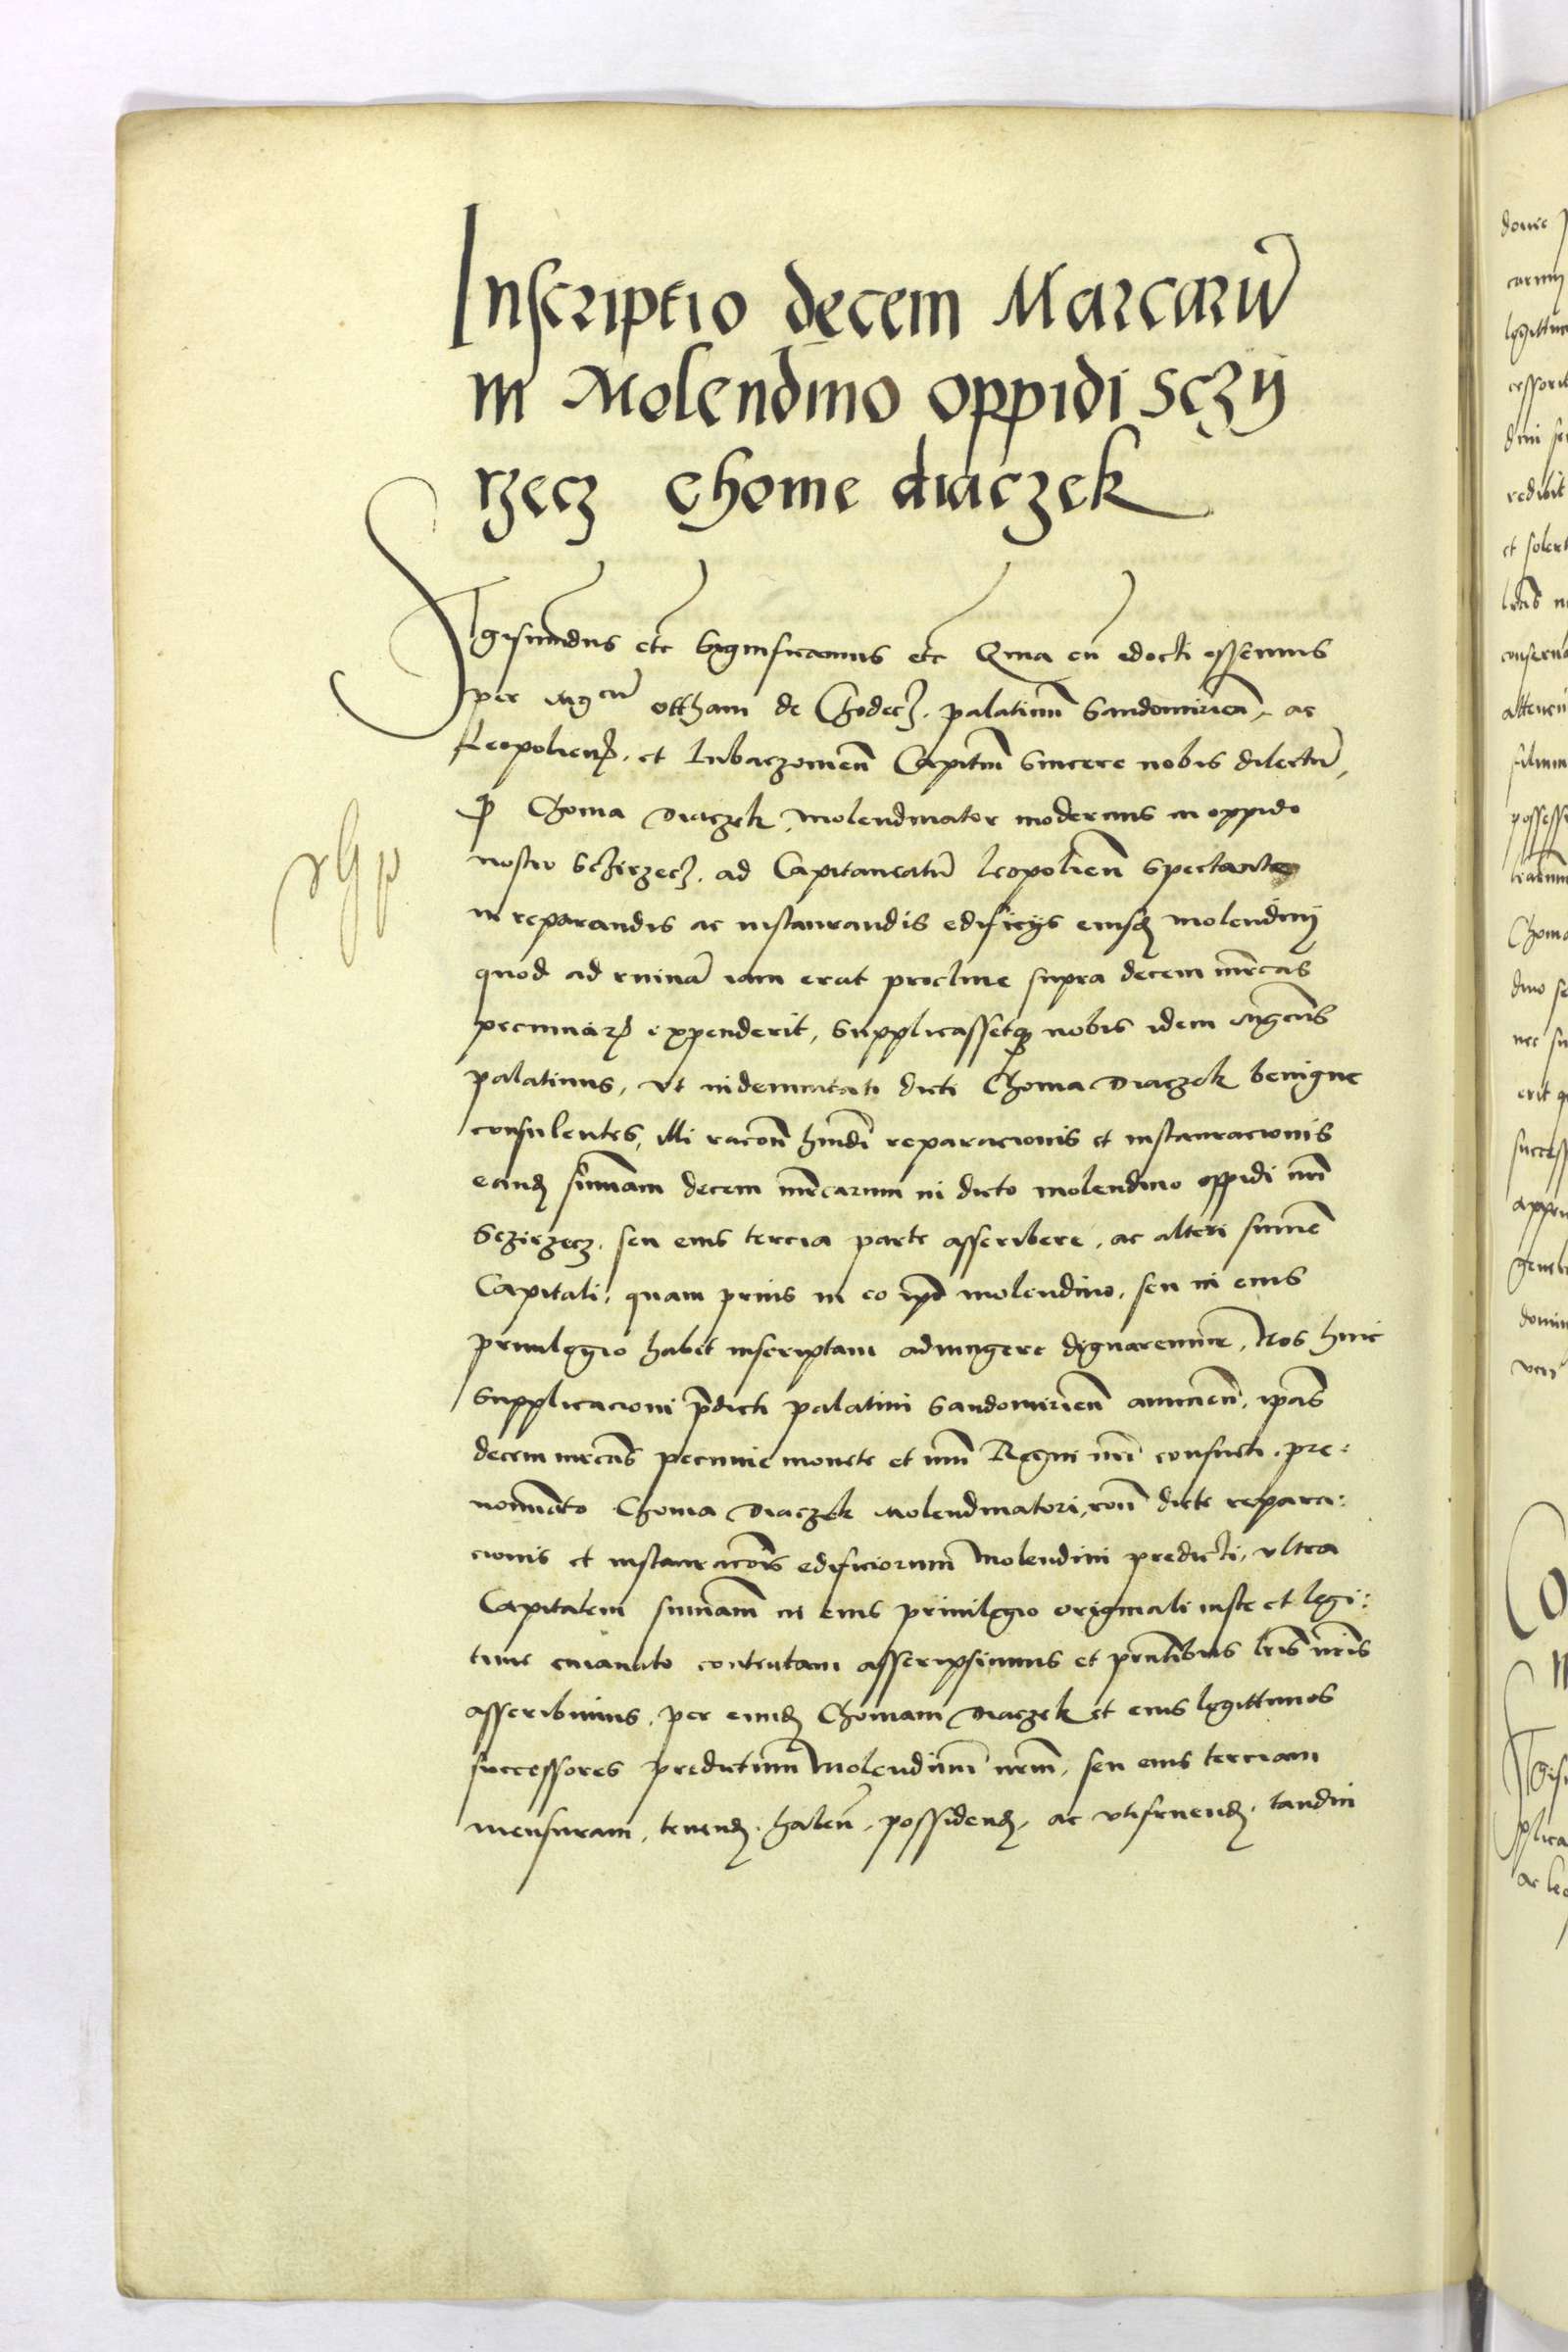 Inscriptio decem Marcarū
in Molendino oppidi Sczy
rzecz Chome diaczek
Sigismūdus etc Significamus etc Quia cū edocti essemus
per Mgcū ottham de Chodecz. palatinū Sandomirień. ac
Leopolień. et lubaczowień Capitm̄ Sincere nobis dilectū,
Choma Diaczek, molendinator modernus in oppido
nostro Sczirzecz. ad Capitaneatū leopolień Spectante
in reparandis ac instaurandis edificijs eiusd molendinj
quod ad ruinā iam erat procliue supra decem mrcas
pecuniar expenderit, Supplicassetq nobis idem Mgcūs
palatinus, vt indemnitati dicti Choma Diaczek benigne
consulentes, illi racōn hmōi reparacionis et instauracionis
eand summam decem mrcarum in dicto molendino oppidi nr̄i
Sczirzecz. seu eius tercia parte asscribere. ac alteri sume
Capitali, quam prius in eo ip̄o molendino, seu in eius
priuilegio habet inscriptam adiungere dignaremur, Nos huic
Supplicacioni p̄dicti palatini Sandomirień annueń, ip̄as
decem mrcas pecunie monete et nūi Regni nr̄i consueti. pre:
nominato Choma Diaczek Molendinatori, rōn dicte repara:
cionis et instauracōis edificiorum Molendini predicti, vltra
Capitalem summam in eius priuilegio originali iuste et legi:
time emanato contentam asscripsimus et pn̄tibus lr̄is nr̄is
asscribimus. per eund Chomam Diaczek et eius legittimos
successores predictum Molendinū nr̄m, seu eius terciam
mensuram, tenend. habeń, possidend, ac vtifruend. tandiu